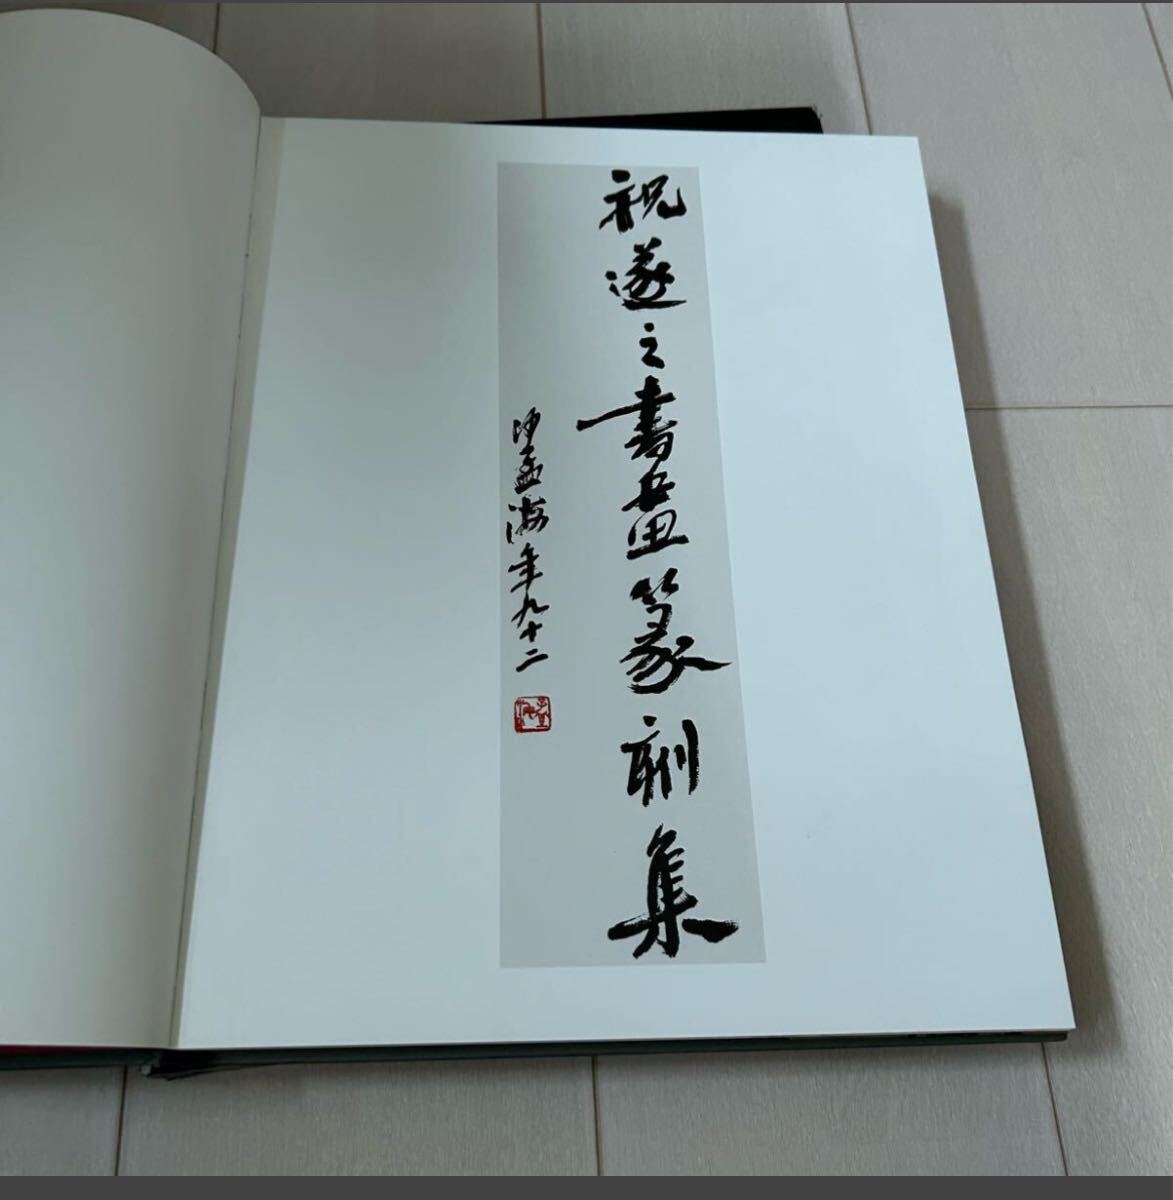 祝遂之書畫篆刻集
沙孟海年九十二